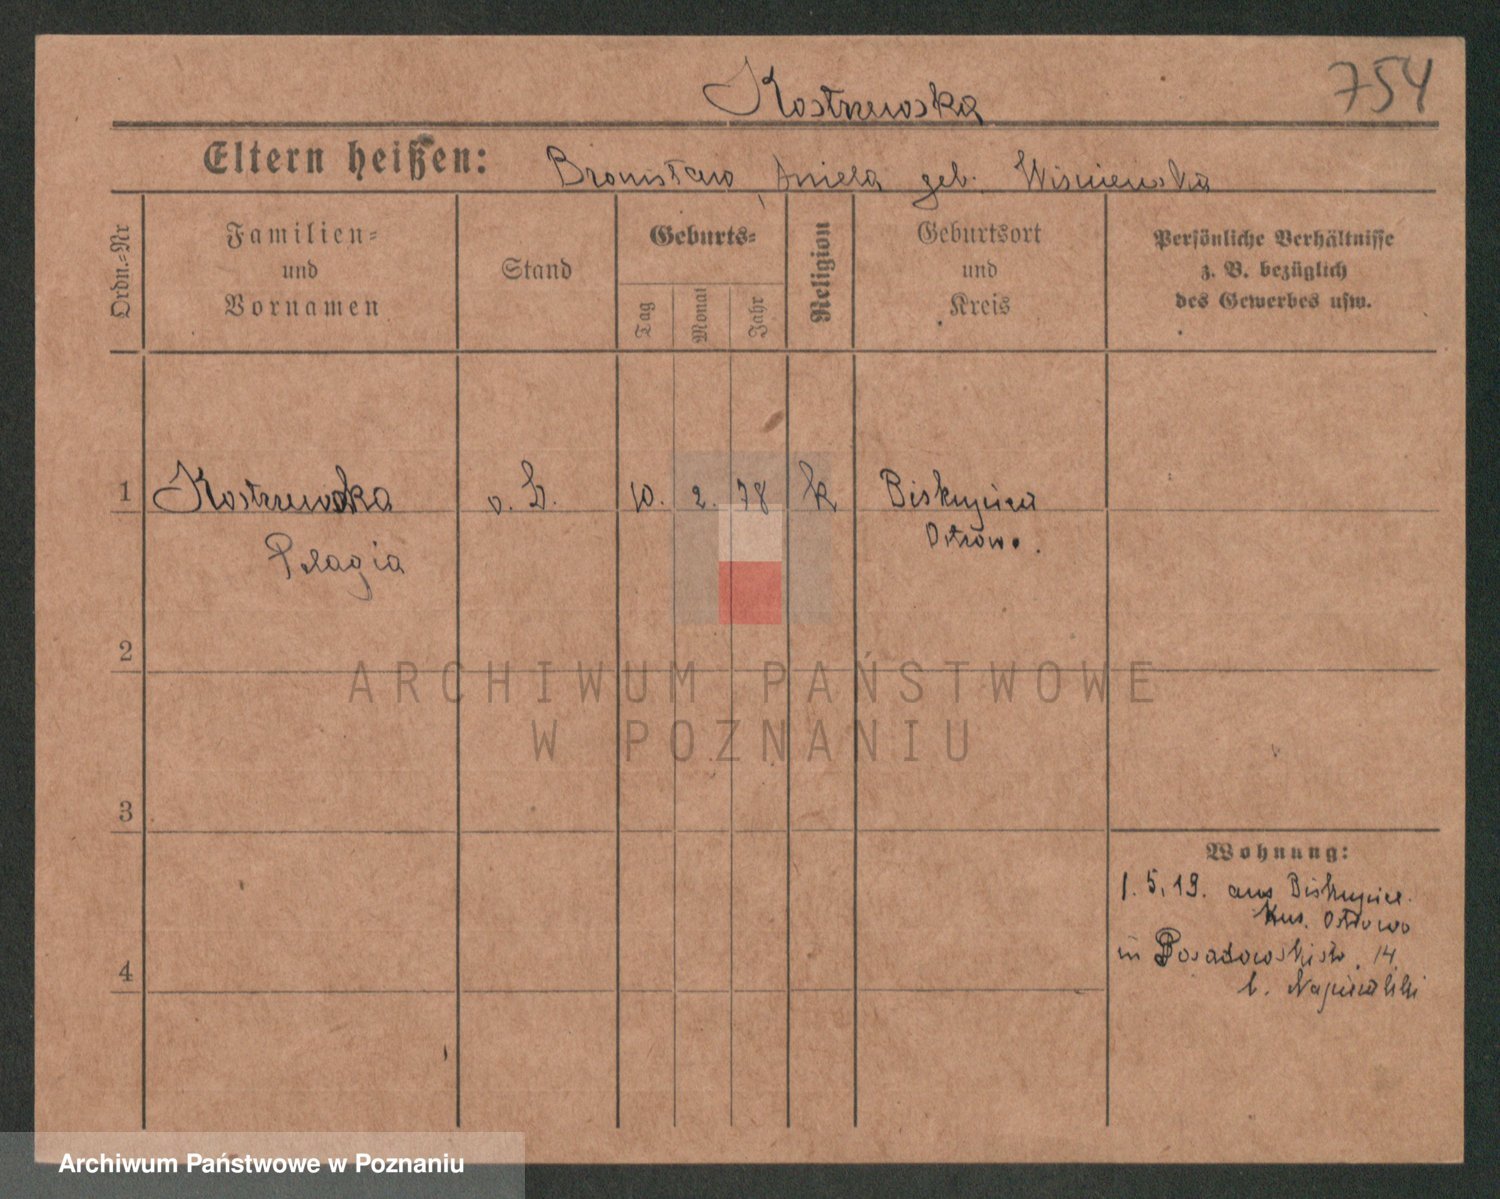 Kostrzewska
754
Eltern heißen: Bronisław, Aniela geb. Wiśniewska
Ordn.=Nr
Familien=
und
Vornamen
Stand
Geburts=
Tag
Monat
Jahr
Religion
Geburtsort
und
Kreis
Persönliche Verhältnisse
z. B. bezüglich
des Gewerbes usw.
1 Kostrzewska o. 10. 2. 78 k Biskupice
Pelagia Ostrowo.
2
3
4
Wohnung:
1. 5. 19. aus Biskupice.
Ostrowo
in Posadowskistr. 14
b. Napieralski
ARCHIWUM PAŃSTWOWE
W POZNANIU
Archiwum Państwowe w Poznaniu